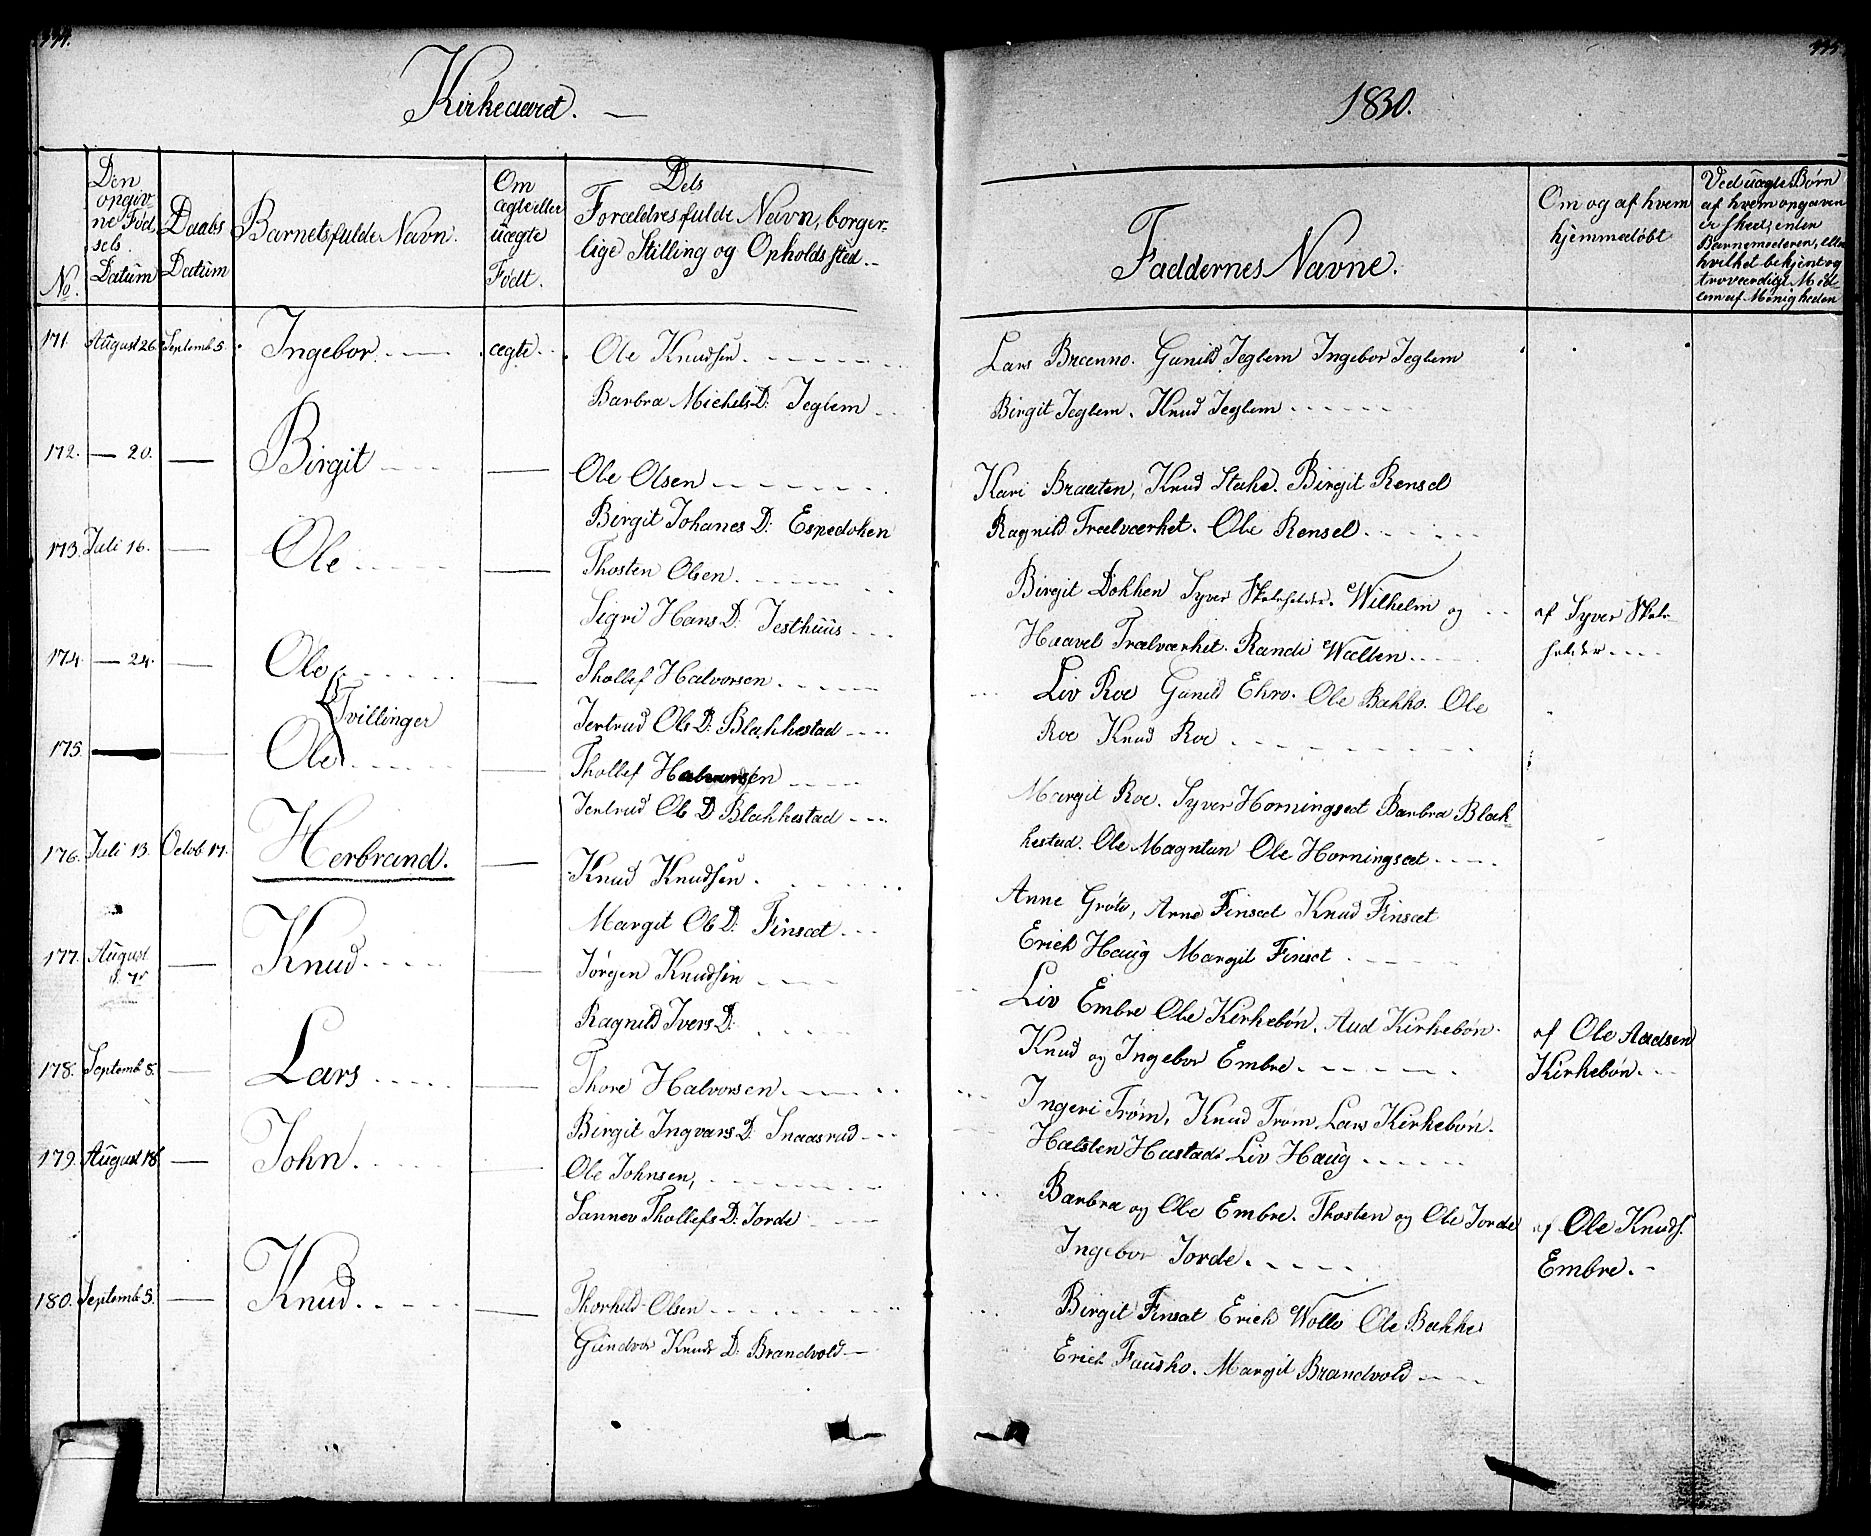 Kirkeaaret. —
No.
Den opgivne Fødsels Datum
Daabs Datum
Barnets fulde Navn.
Om ægte eller uægte Født.
Dets Forældres fulde Navn, borgerlige Stilling og Opholdssted.
171 August 26. Septemb 5. Ingebor. ægte. Ole Knudsen
Barbra Michels D: Jeglem
172. — 20. — Birgit — Ole Olsen
Birgit Johanes D: Espedoken
173. Juli 16. — Ole — Thosten Olsen.
Sigri Hans D: Jesthuus
174. — 24. — Ole — Thollef Halvorsen
Tvillinger
Jertrud Ols D: Blakkestad
175. — — Ole — Thollef Halvorsen
Jertrud Ols D Blakkestad
176. Juli 13. Octob 17. Herbrand. — Knud Knudsen.
Margit Ols D: Finsæt
177. August d. 7de — Knud — Jørgen Knudsen
Ragnild Ivers D:
178. Septemb 8. — Lars — Thore Halvorsen
Birgit Ingvars D: Snaasrud
179. August 18. — John. — Ole Johnsen,
Sannev Thollefs D: Jorde
180. Septemb 5. — Knud. — Thorkild Olsen
Gundvor Knuds D: Brandvold
1830.
Faddernes Navne.
Om og af hvem hjemmedøbt
Ved uægte Børn af hvem opgaven er skeet, enten Barnemoderen, eller hvilket bekjent og troværdigt Medlem af Menigheden
Lars Brænno. Gunild Jeglem Ingebor Jeglem
Birgit Jeglem. Knud Jeglem
Kari Braaten, Knud Stake. Birgit Rensel
Ragnild Trælværket. Ole Rensel
Birgit Dokken Syver Skoleholder. Wilhelm og af Syver Skole-
Haavel Trælværket. Randi Wællen holder
Liv Roe Gunild Ekro. Ole Bakko. Ole
Roe Knud Roe
Margit Roe. Syver Horningsæt Barbra Blak-
kestad. Ole Magntun Ole Horningsæt
Anne Grøte, Arne Finsæt Knud Finsæt
Erick Haug Margit Finset
Liv Embre Ole Kirkebøn. Aud Kirkebøn. af Ole Aadsen
Knud og Ingebor Embre Kirkebøn.
Ingeri Trøm, Knud Trøm. Lars Kirkebøn.
Halsten Hustad. Liv Haug
Barbra og Ole Embre. Thosten og Ole Jorde af Ole Knuds.
Ingebor Jorde. Embre.
Birgit Finsat Erick Wolle Ole Bakke
Erick Fausko. Margit Brandvold